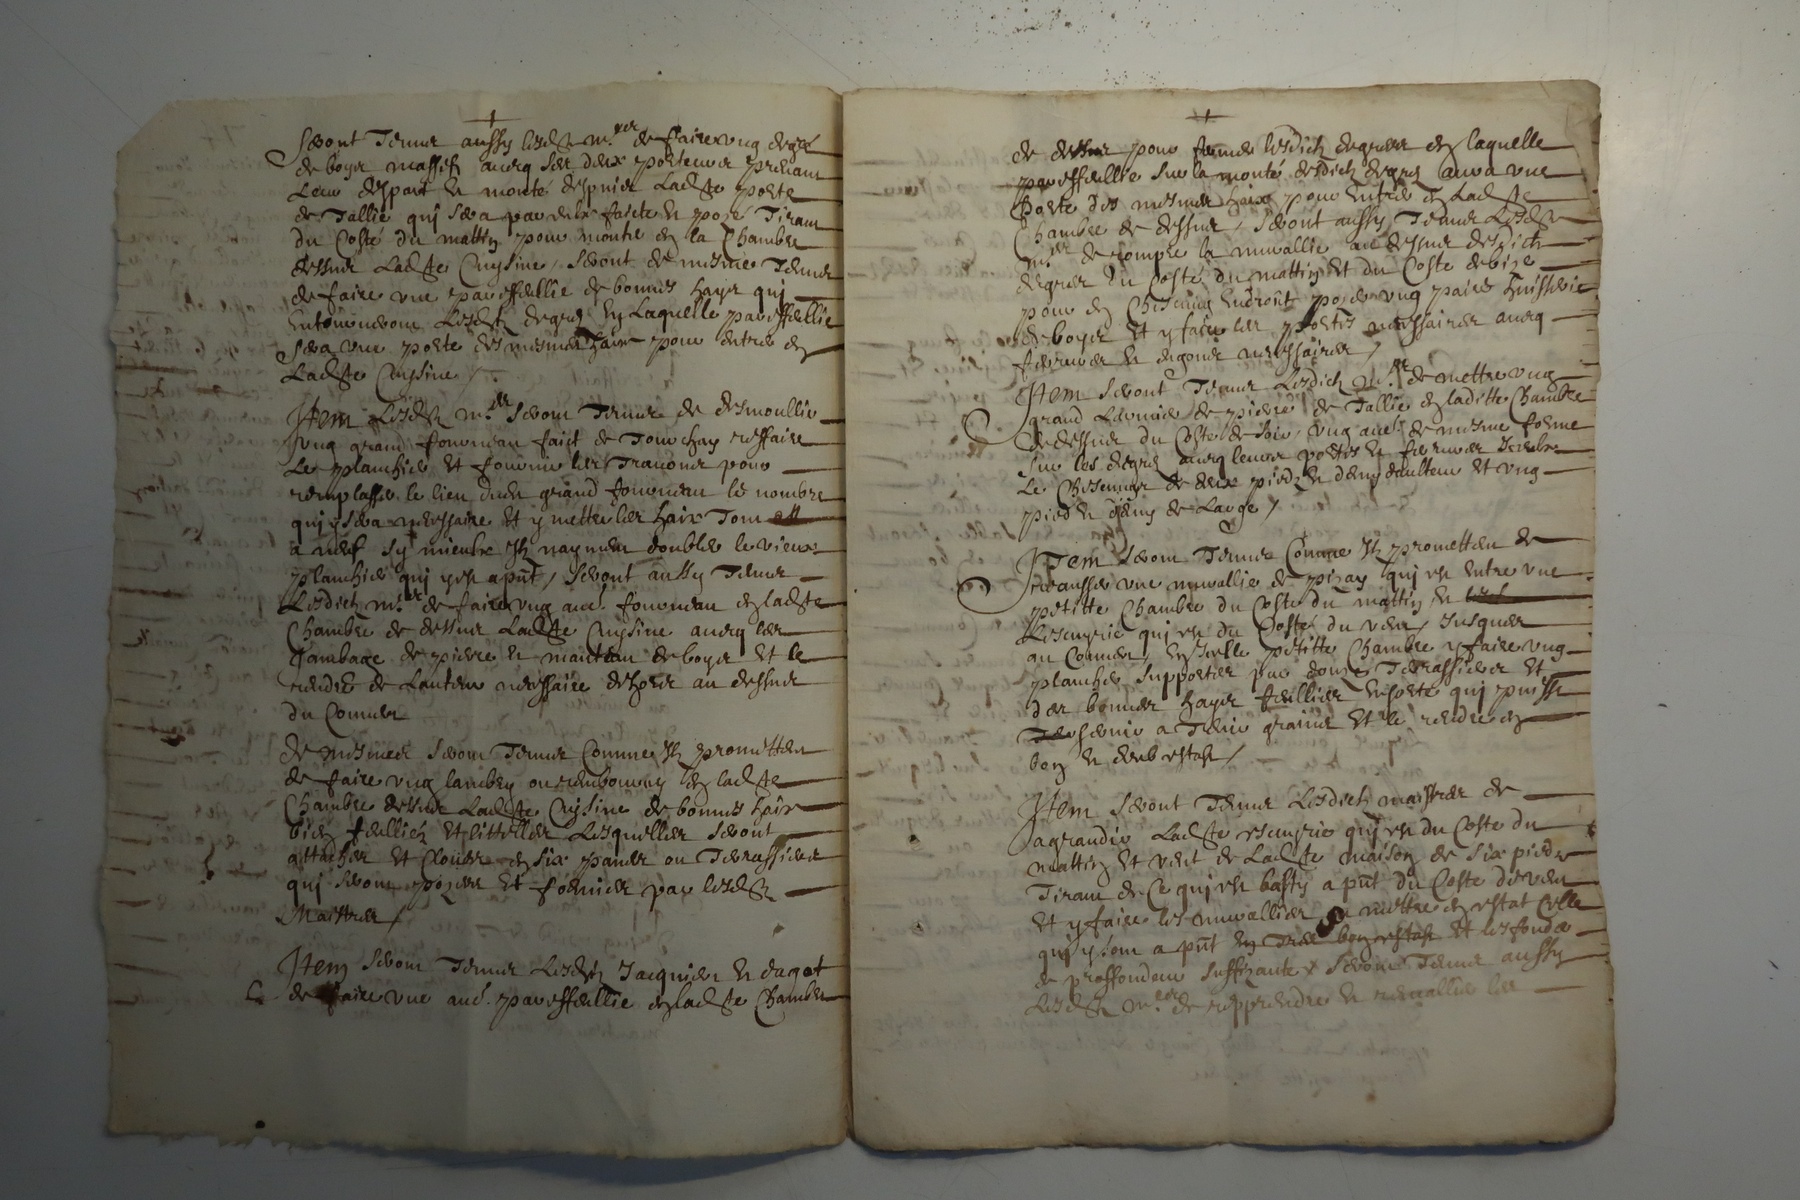 Seront Tenus aussy lesdts mres de faire ung degré
de boys massifz avecq ses deux posteaux prenant
Leur despart et monté despuis Ladste porte
de Tallie qui sera par eulx faicte et posé Tirant
du Costé du mattin pour monter en la Chambre
dessus Ladste Cuysine, Seront de mesme Tenus
de faire une pareffeullie de bonnes hays qui
Entourneront Lesdts degrez En Laquelle pareffeullie
Sera une porte des mesmes haix pour entrer en
Ladste Cuysine /
Item Lesdts mres Seront Tenus de desmoullir
ung grand fourneau faict de refaire
Le planchier et fournir les Travons pour
remplasser le lieu dudt grand fourneau le nombre
qui y sera nessaire Et y mettre les haix Tout
a neuf sy mieulx Ilz n'ayment doubler le vieux
planchier qui y est a pnt, Seront aussy Tenus
Lesdictz mres de faire ung aue. fourneau en ladste
Chambre de dessus Ladste Cuysine avecq les
Jambage de pierre et manteau de boys et le
rendre de Lauteur nessaire au dessus
du Couvert
de mesmes Seront Tenus Comme Ilz promettent
de faire ung lambry en ladste
Chambre dessus Ladste Cuysine de bonnes haix
bien feullies Et littellees Lesquelles Seront
attaches Et Clouees en six panes ou Terrassieres
qui Seront poses Et fornies par lesdts
Maistres /
Item Seront Tenus Lesdts Jacquier et dagot
de faire une aue. pareffeullie en ladste Chambre
de dessus pour fermer lesdictz degrees en laquelle
pareffeullie sur la monté desdictz degrez aura une
Porte des mesmes haix pour entrer en Ladste
Chambre de dessus, Seront aussy Tenus Lesdts
mres de rompre la murallie au dessus desdicts
degrez du costé du mattin et du Coste de bize
pour en Chescung Endroit poser ung paire huisserie
de boys Et y faire les portes nessaires avecq
ferrures et egonds nessaires /
Item Seront Tenus Lesdictz mres de mettre ung
grand Larmier de pierre de Tallie en laditte Chambre
de dessus du Coste de soir, ung aue. de mesme forme
sur les degrez avecq leurs portes et ferrures
Le Chescungs de deux piedz et demy daulteur et ung
pied et demy de Large /
ITem Seront Tenus Comme Ilz promettent de
reausser une murallie de pizay qui est entre une
petitte Chambre du Coste du mattin et
Lescuyrie qui est du Coste du vent, Jusques
au Couvert, En icelle petitte Chambre y faire ung
planchier supporter par douze Terrassieres Et
des bonnes hayes feullies Ensorte qui puisse
servir a Tenir graines Et le rendre en
bon et deub estast /
Item Seront Tenus Lesdictz maistres de
agrandir Ladste escuyrie qui est du Coste du
mattin Et vent de Ladste maison de six piedz
Tirant de Ce qui est basty a pnt du Coste du vent
Et y faire les muralliers mettre en estat Celle
qui y sont a pnt En bon estast Et les fondes
de proffondeur suffizante x Seront Tenus aussy
Lesdts mres de repprendre et remallier les